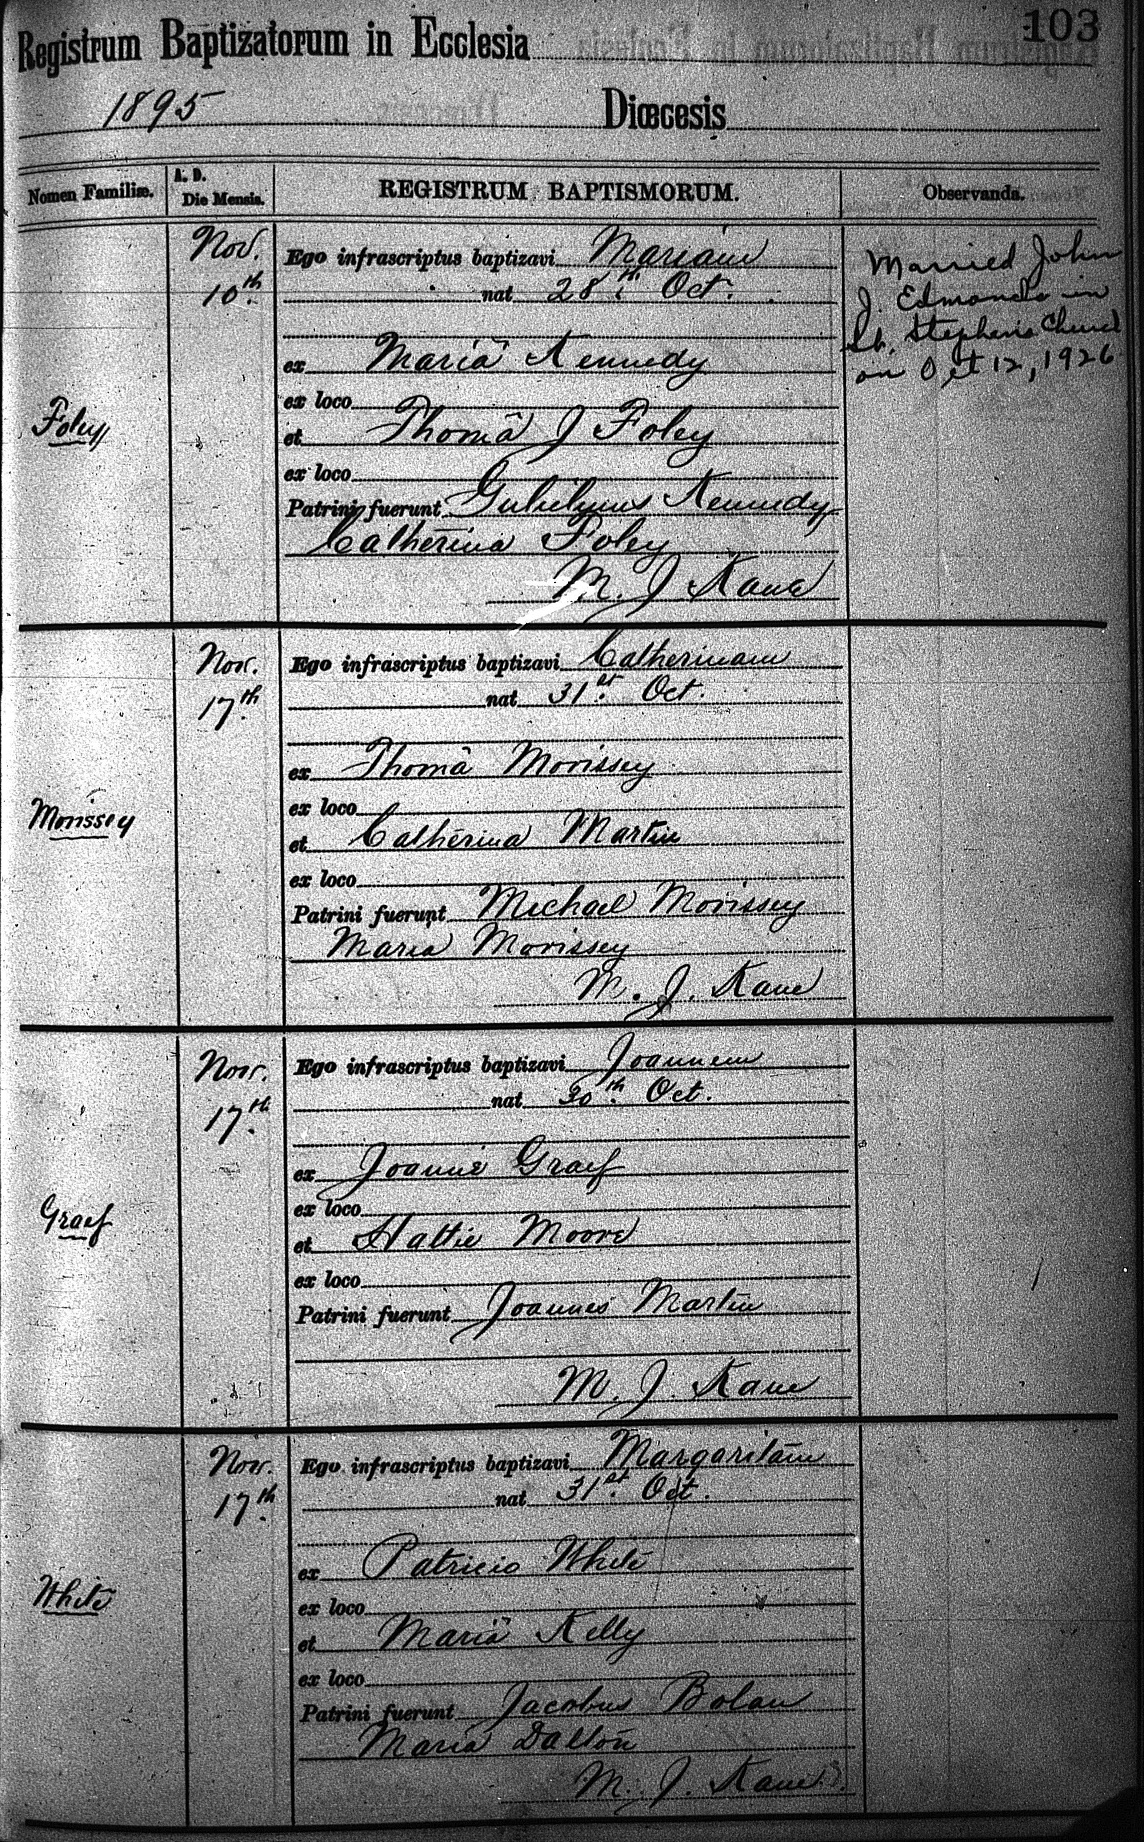 103
Registrum Baptizatorum in Ecclesia
1895 Diœcesis
Nomen Familiæ. A. D. Die Mensis. REGISTRUM BAPTISMORUM. Observanda.
Foley
Nov. 10th
Ego infrascriptus baptizavi Mariam
nat 28th Oct.
ex Mariâ Kennedy
ex loco
et Thomâ J Foley
ex loco
Patrini fuerunt Gulielmus Kennedy
Catherina Foley
M. J Kane
Married John
J. Edmonds in
St. Stephens Church
on Oct 12, 1926
Morissey
Nov. 17th
Ego infrascriptus baptizavi Catherinam
nat 31st Oct.
ex Thomâ Morissey
ex loco
et Catherina Martin
ex loco
Patrini fuerunt Michael Morissey
Maria Morissey
M. J. Kane
Graef
Nov. 17th
Ego infrascriptus baptizavi Joannem
nat 30th Oct.
ex Joanne Graef
ex loco
et Hattie Moore
ex loco
Patrini fuerunt Joannes Martin
M. J. Kane
White
Nov. 17th
Ego infrascriptus baptizavi Margaritam
nat 31st Oct.
ex Patricio White
ex loco
et Mariâ Kelly
ex loco
Patrini fuerunt Jacobus Bolan
Maria Dalton
M. J. Kane